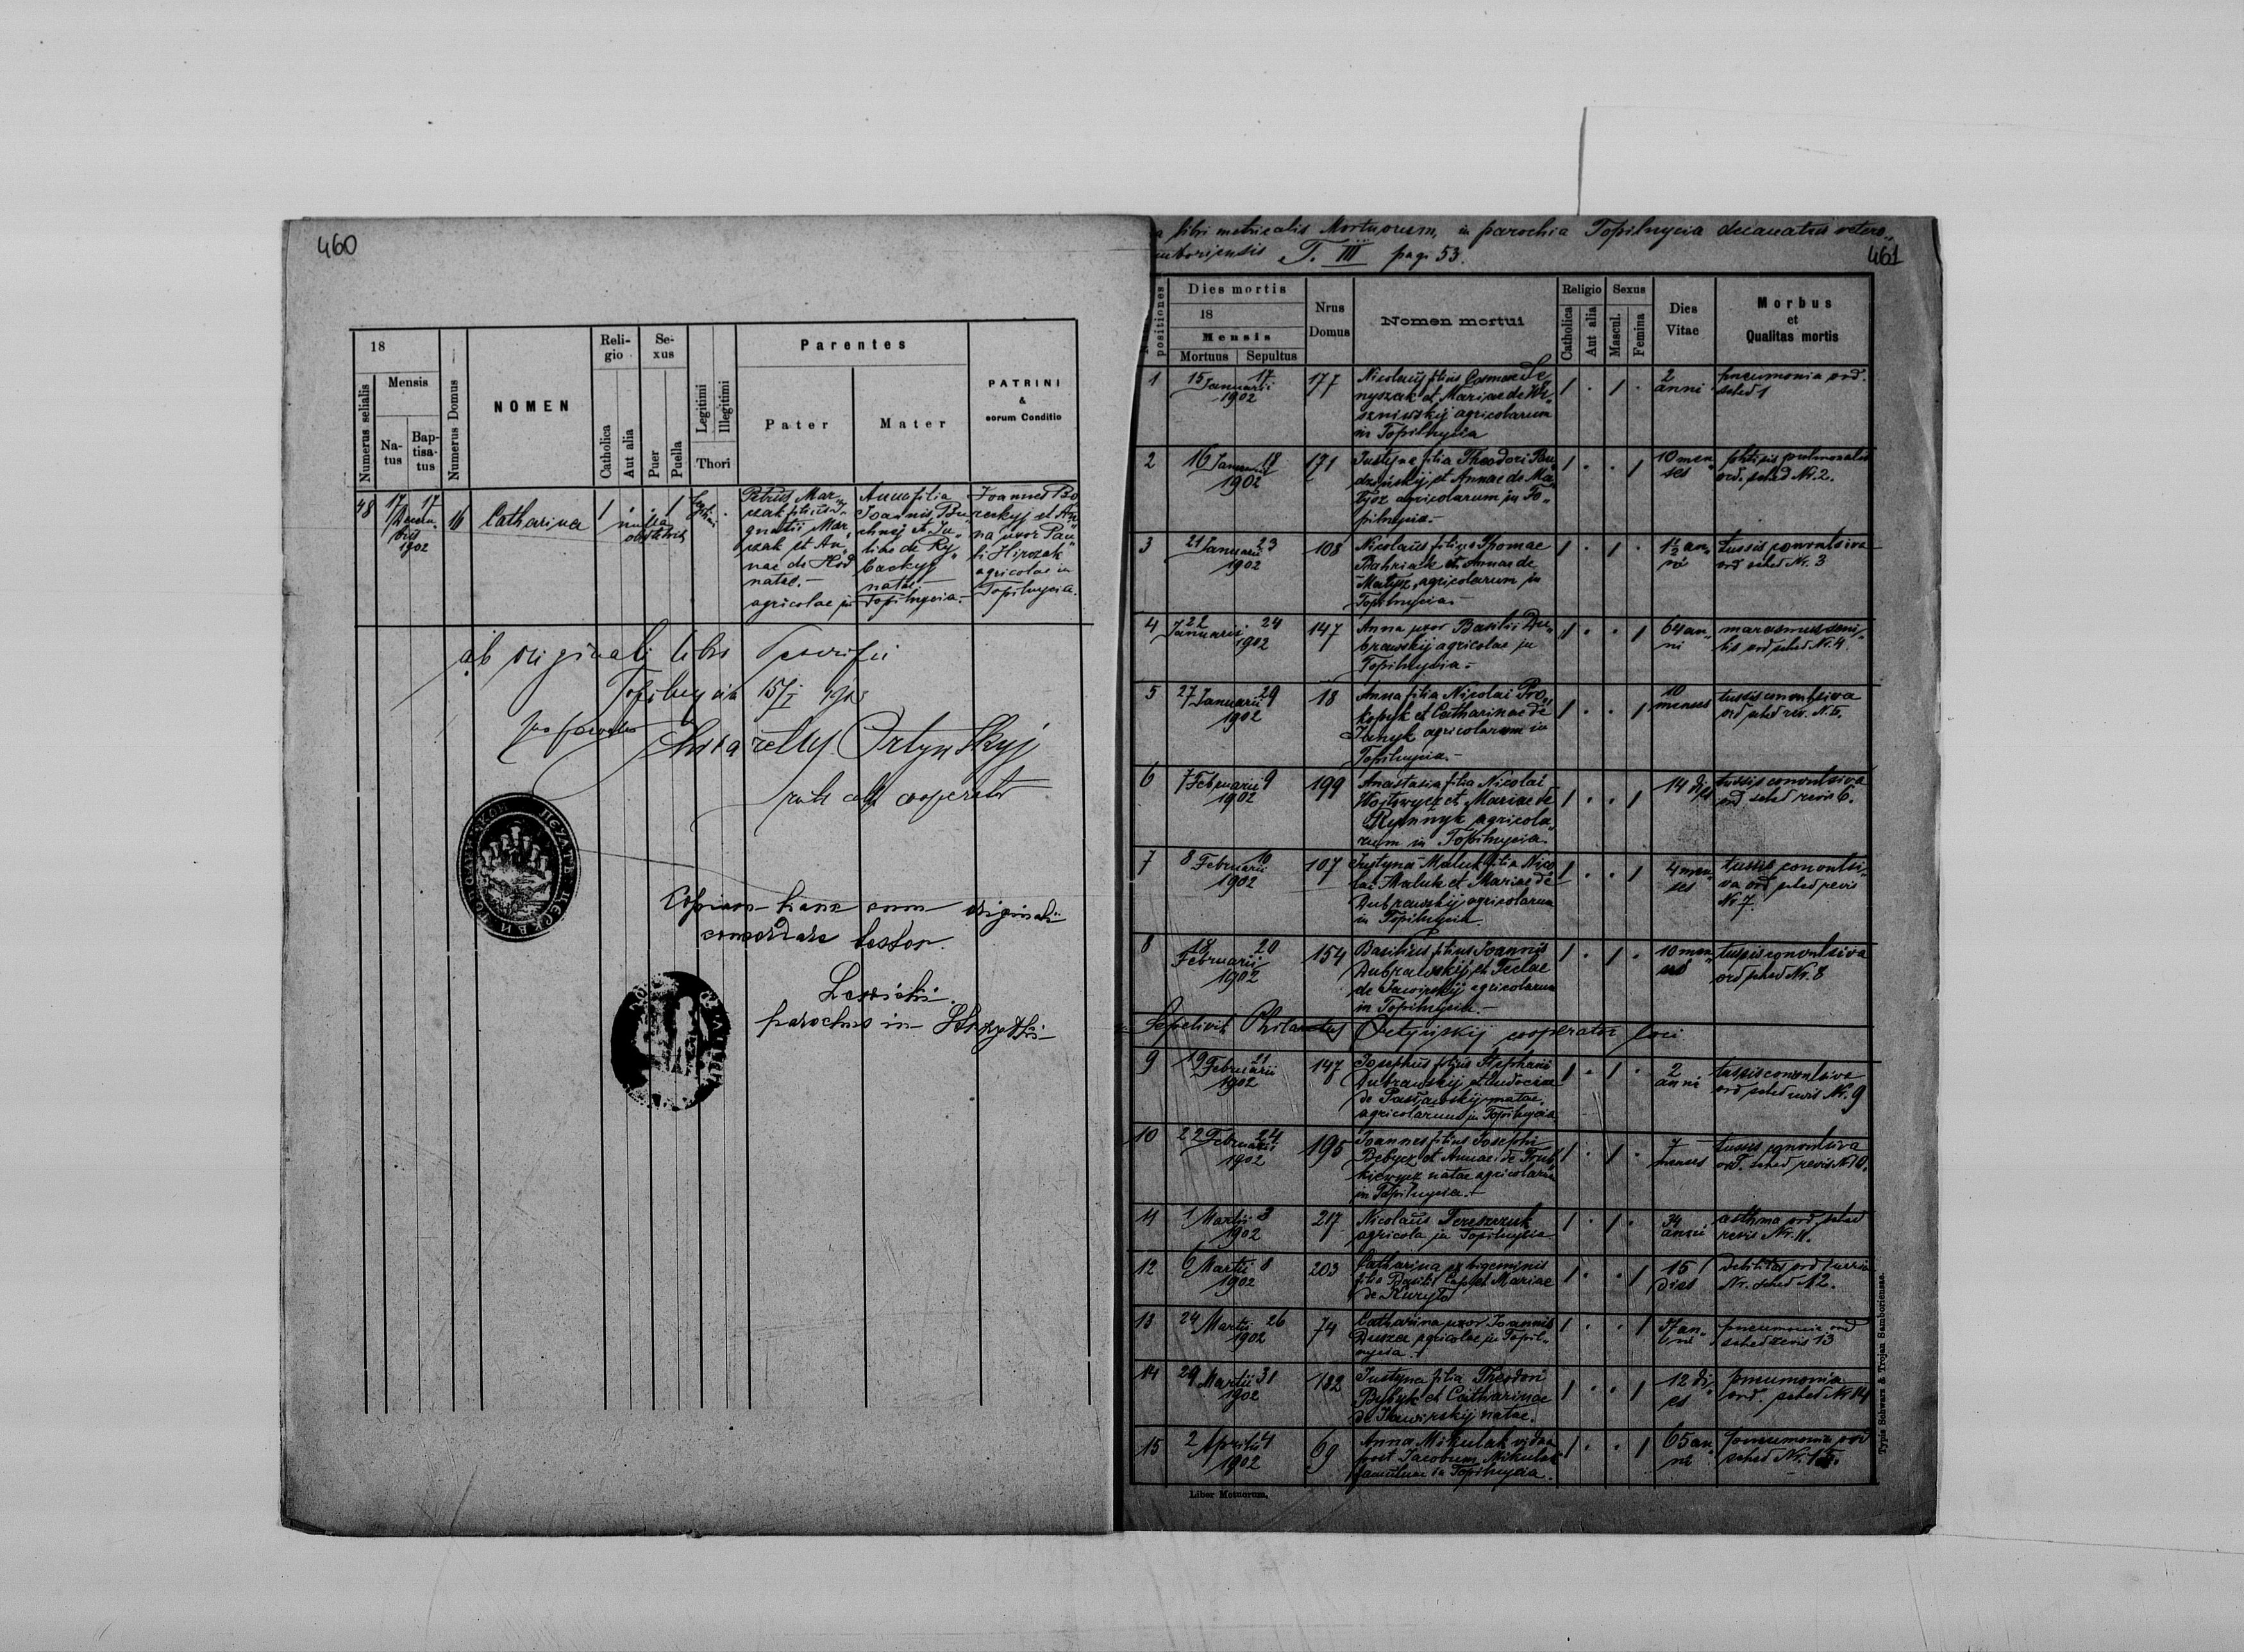 460
18
Numerus selialis
Mensis
Natus
Baptisatus
Numerus Domus
NOMEN
Religio
Catholica
Aut alia
Sexus
Puer
Puella
Legitimi
Illegitimi
Thori
Parentes
Pater
Mater
PATRINI
&
eorum Conditio
48
17 17
Decem-
bris
1902
16
Catharina
nulla
obstetrix
Petrus Mar-
czak filius I-
gnatii Mar-
czak et An-
nae de Hod
natae.-
agricolae in
Anna filia
Joannis
et Ju-
linae de Ry-
backyj
natae
Topilnycia.-
Joannes
et An-
na uxor Pau-
li Hirczak
agricolae in
Topilnycia.
ab originali libro
Topilnycia 15/I
pro parocho
Ortynskyj
cooperator
Copiam hanc cum originali
concordare testor.
parochus in
461
libri metricalis Mortuorum, in parochia Topilnycia decanatus vetero-
samboriensis T. III pag. 53.
positiones
Dies mortis
18
Mensis
Mortuus Sepultus
Nrus
Domus
Nomen mortui
Religio
Catholica
Aut alia
Sexus
Mascul.
Femina
Dies
Vitae
Morbus
et
Qualitas mortis
1 15 Januarii 17 1902 177
Nicolaus filius Cosmae De-
nyszak et Mariae de Wi-
szniwskij agricolarum
in Topilnycia
2 anni
pneumonia ord.
sched 1
2 16 Januarii 18 1902 171
Justyna filia Theodori
et Annae de Ma-
tysz agricolarum in To-
pilnycia.-
10 men-
ses
phtisis pulmonalis
ord. sched Nr. 2.
3 21 Januarii 23 1902 108
Nicolaus filius Thomae
Bahriak et Annae de
Matysz agricolarum in
Topilnycia.-
1½ an-
ni
tussis convulsiva
ord sched Nr. 3
4 22 Januarii 24 1902 147
Anna uxor Basilii Du-
brawskij agricolae in
Topilnycia.-
64 an-
ni
marasmus seni-
lis ord sched Nr. 4.
5 27 Januarii 29 1902 18
Anna filia Nicolai Pro-
kopyk et Catharinae de
agricolarum in
Topilnycia.-
10
menses
tussis convulsiva
ord sched rev. N. 5.
6 7 Februarii 9 1902 199
Anastasia filia Nicolai
Wojtowycz et Mariae de
agricola-
rum in Topilnycia.
14 dies
tussis convulsiva
ord sched revis 6.
7 8 Februarii 10 1902 107
Justyna Maluk filia Nico-
lai Maluk et Mariae de
Dubrawskij agricolarum
in Topilnycia.
4 men-
ses
tussis convulsi-
va ord sched revis
Nr 7
8 18 Februarii 20 1902 154
Basilius filius Joannis
Dubrawskij et Teclae
de Jaworskij agricolarum
in Topilnycia.-
10 men-
ses
tussis convulsiva
ord sched Nr. 8
Sepelivit Philaretus Ortynskij cooperator loci
9 19 Februarii 21 1902 147
Josephus filius Stephani
Dubrawskij et Eudociae
de natae
agricolarum in Topilnycia
2
anni
tussis convulsiva
ord sched revis Nr. 9
10 22 Februarii 24 1902 195
Joannes filius Josephi
Bebycz et Annae de
natae agricolarum
in Topilnycia.-
7
menses
tussis convulsiva
ord. sched revis N 10.
11 1 Martii 3 1902 217
Nicolaus Tereszczuk
agricola in Topilnycia
34
anni
asthma ord sched
revis Nr. 11.
12 6 Martii 8 1902 203
Catharina ex bigeminis
filia Basilii Cap et Mariae
de Kuryło
15
dies
debilitas ord
Nr. sched 12.
13 24 Martii 26 1902 74
Catharina uxor Joannis
Duszcz agricolae in Topil-
nycia.-
pneumonia ord
sched revis 13
14 29 Martii 31 1902 132
Justyna filia Theodori
Bybyk et Catharinae
de natae.
12 di-
es
pneumonia
ord. sched Nr 14
15 2 Aprilis 4 1902 69
Anna Mikulak vidua
post Jacobum Mikulak
in Topilnycia.
65 an-
ni
pneumonia ord
sched Nr. 15.
Liber Motuorum.
Typis Schwarz & Trojan Samboriensae.